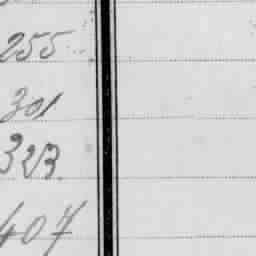 255
301
323
407